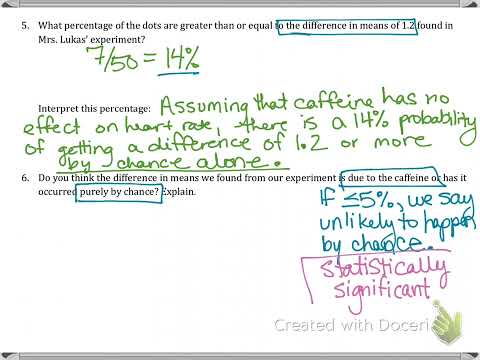 5. What percentage of the dots are greater than or equal to the difference in means of 1.2 found in
Mrs. Lukas' experiment?
7/50 = 14%
Interpret this percentage: Assuming that caffeine has no
effect on heart rate, there is a 14% probability
of getting a difference of 1.2 or more
by chance alone.
6. Do you think the difference in means we found from our experiment is due to the caffeine or has it
occurred purely by chance? Explain.
If ≤5%, we say
unlikely to happen
by chance.
statistically
significant
Created with Doceri